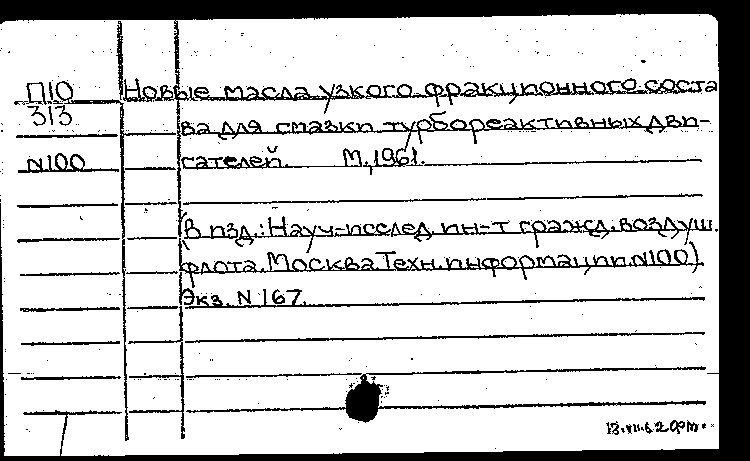 П10 Новые масла узкого фракционного соста
313 ва для смазки турбореактивных дви-
N100 гателей. М., 1961.
(В изд.: Науч-исслед. ин-т гражд. воздуш.
флота. Москва Техн. информации N100).
Экз. N 167.